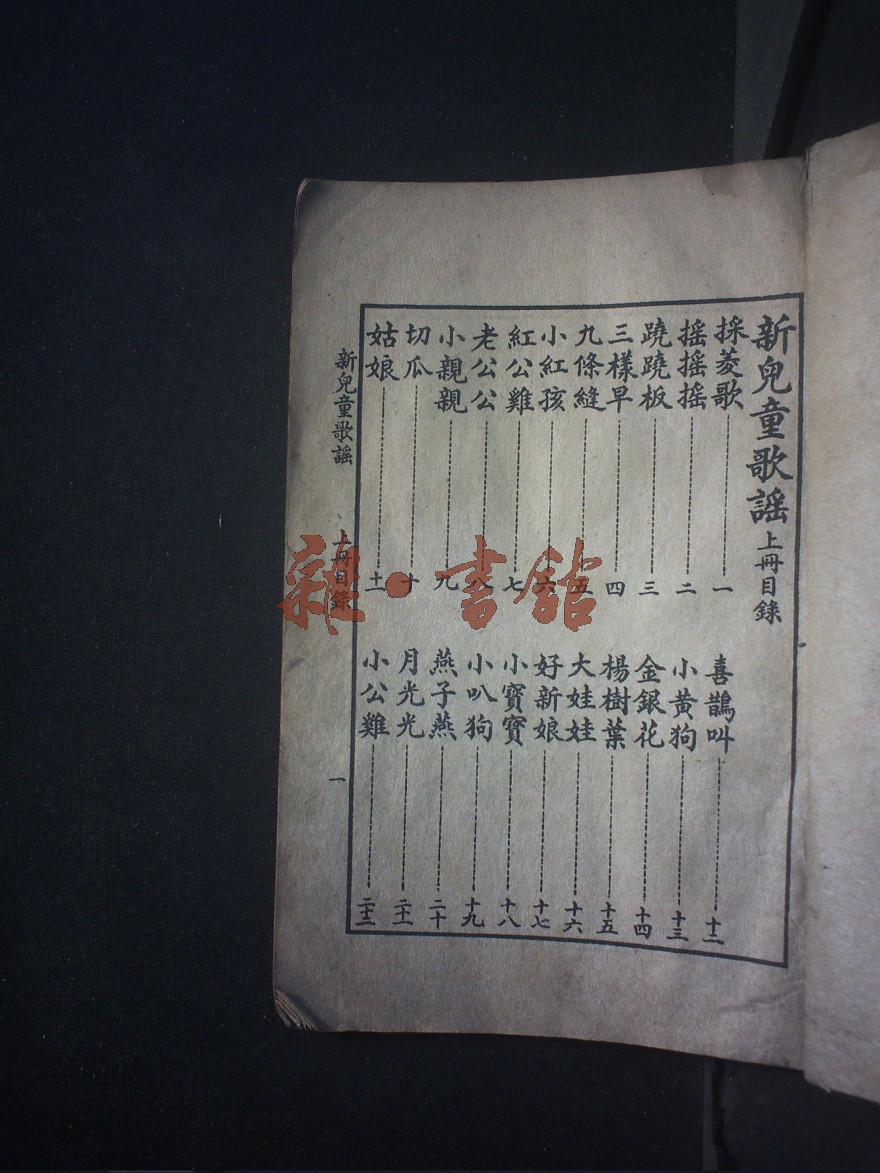 新兒童歌謠 上冊目錄
採菱歌 一
搖搖搖 二
蹺蹺板 三
三樣早 四
九條縫 五
小紅孩 六
紅公雞 七
老公公 八
小親親 九
切瓜 十
姑娘 十一
喜鵲叫 十二
小黃狗 十三
金銀花 十四
楊樹葉 十五
大娃娃 十六
好新娘 十七
小寶寶 十八
小叭狗 十九
燕子燕 二十
月光光 二十一
小公雞 二十二
新兒童歌謠 上冊目錄 一
雜·書館